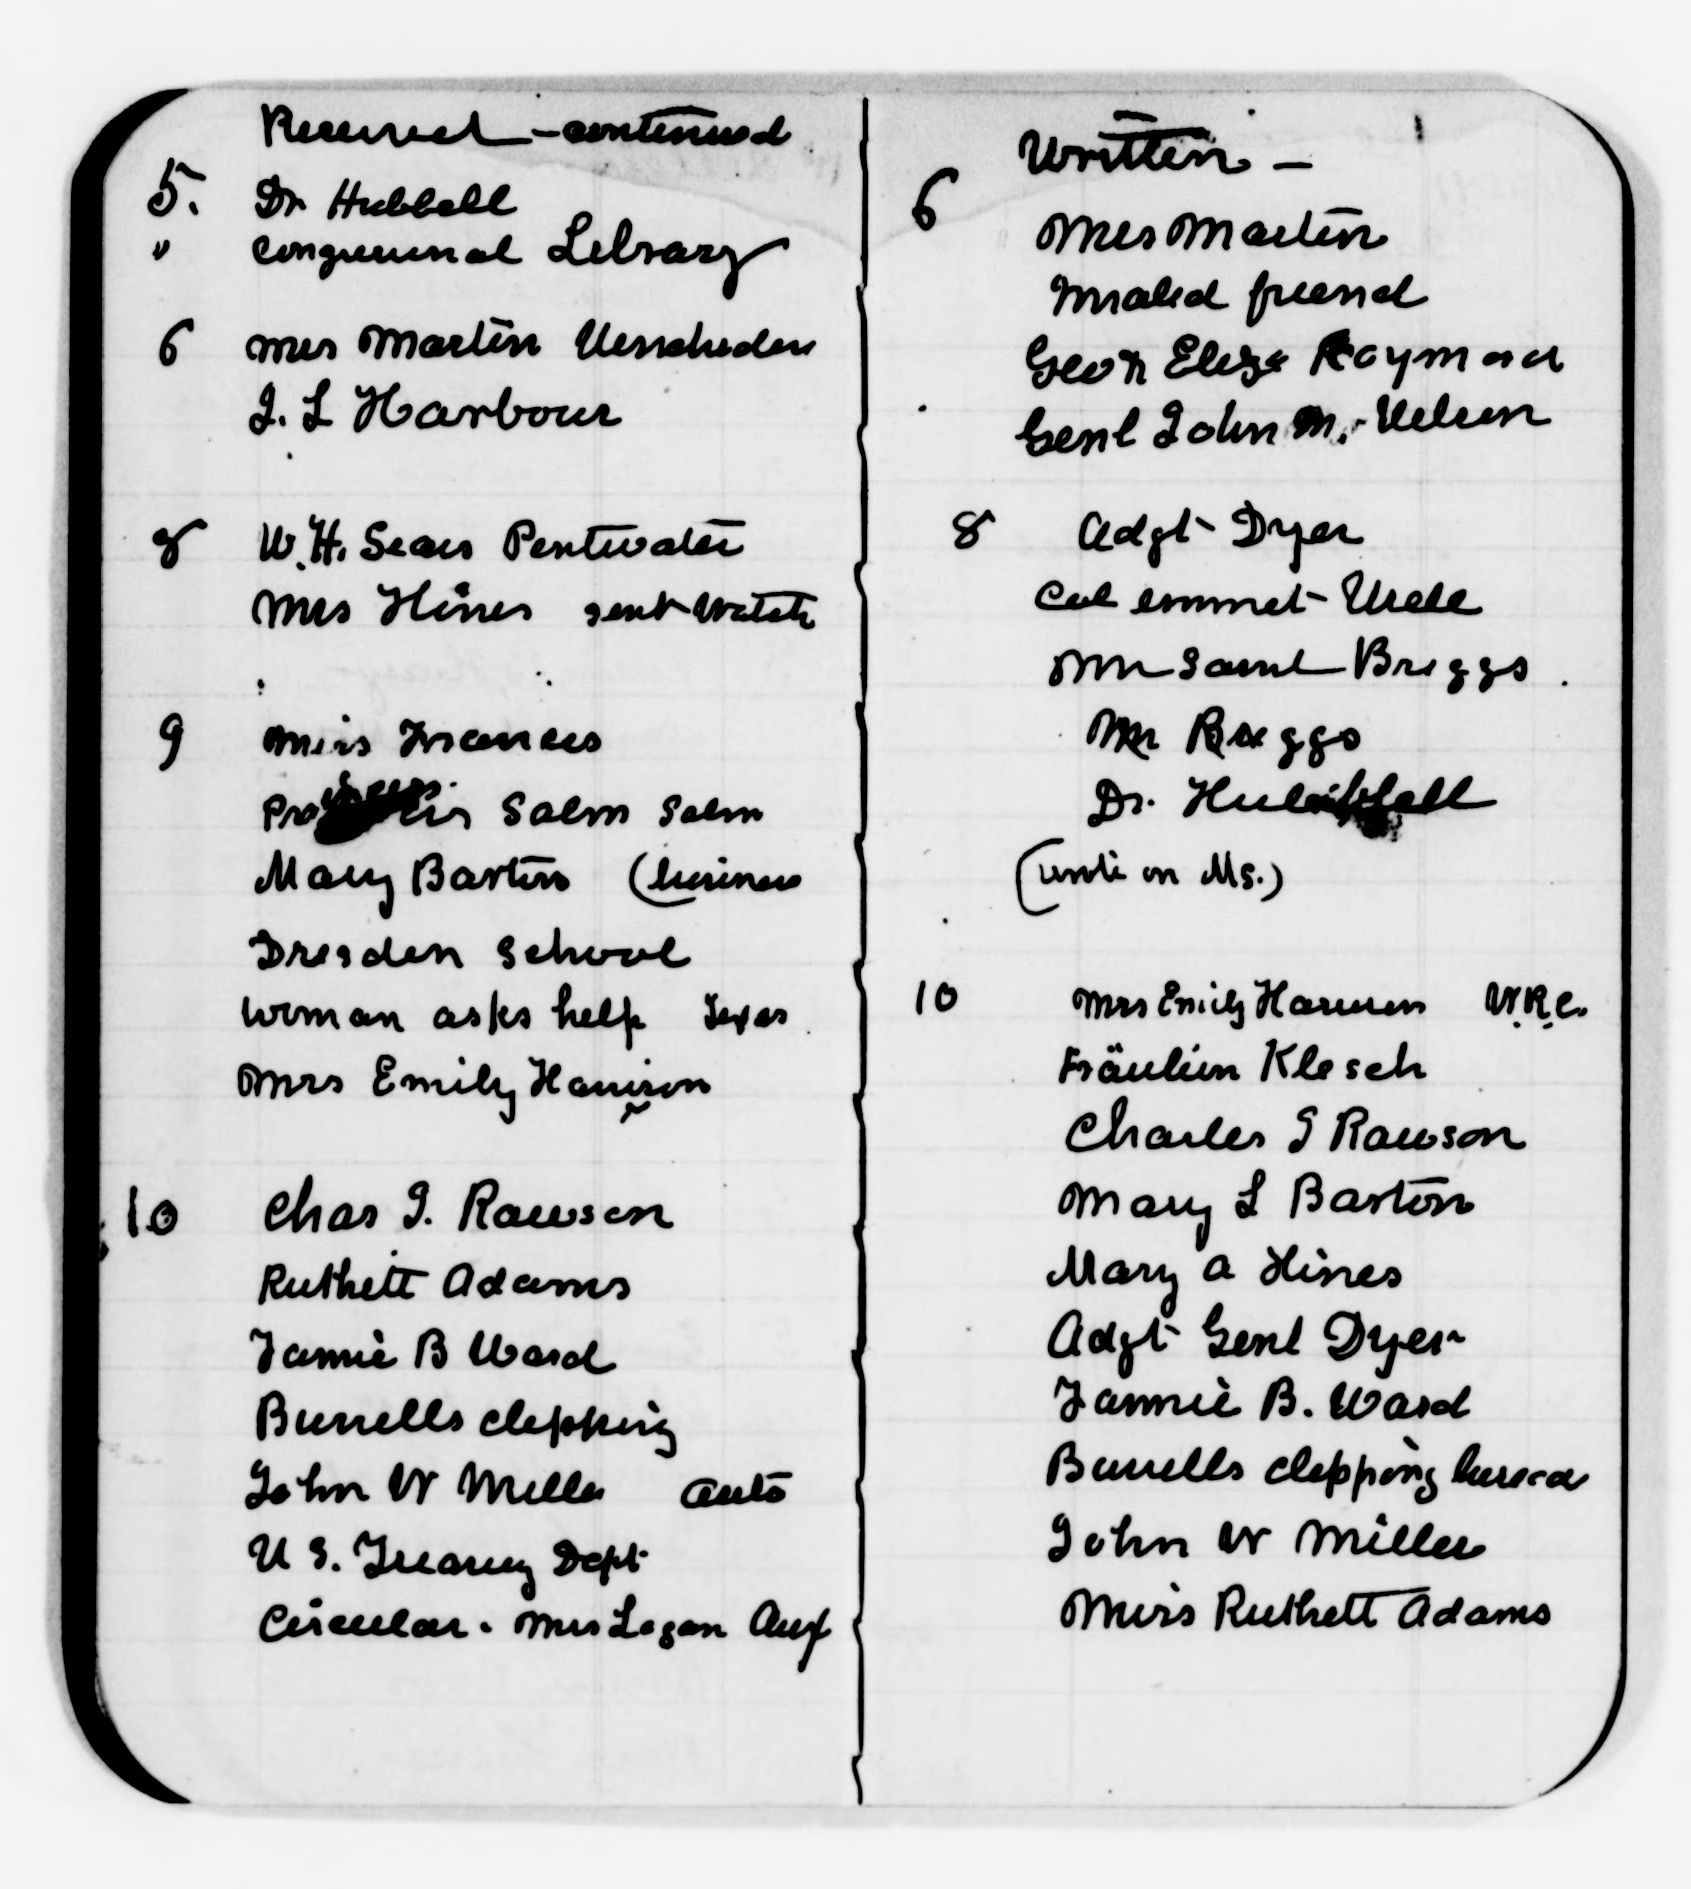 Received – continued
5. Dr Hubbell
" Congressional Library
6 Mrs Martin
J. L Harbour
8 W. H. Sears Pentwater
Mrs Hines sent Watch
9 Miss Frances
Salm Salm
Mary Barton (business
Dresden School
woman asks help Texas
Mrs Emily Harrison
10 Chas S. Rawson
Ruthett Adams
Fannie B Ward
Burrells clipping
John W Miller auto
U S. Treasury Dept
Circular. Mrs Logan Aux
Written –
6 Mrs Martin
Invalid friend
Eliza Raymond
Genl John M.
8 Adgt Dyer
Col emmet Urell
Saml Briggs
Mr Briggs
Dr. Hubbell
(wrote on Ms.)
10 Mrs Emily Harrison W.R.C.
Fräulein Klesch
Charles S Rawson
Mary L Barton
Mary A Hines
Adgt Genl Dyer
Fannie B. Ward
Burrells clipping bureau
John W Miller
Miss Ruthett Adams